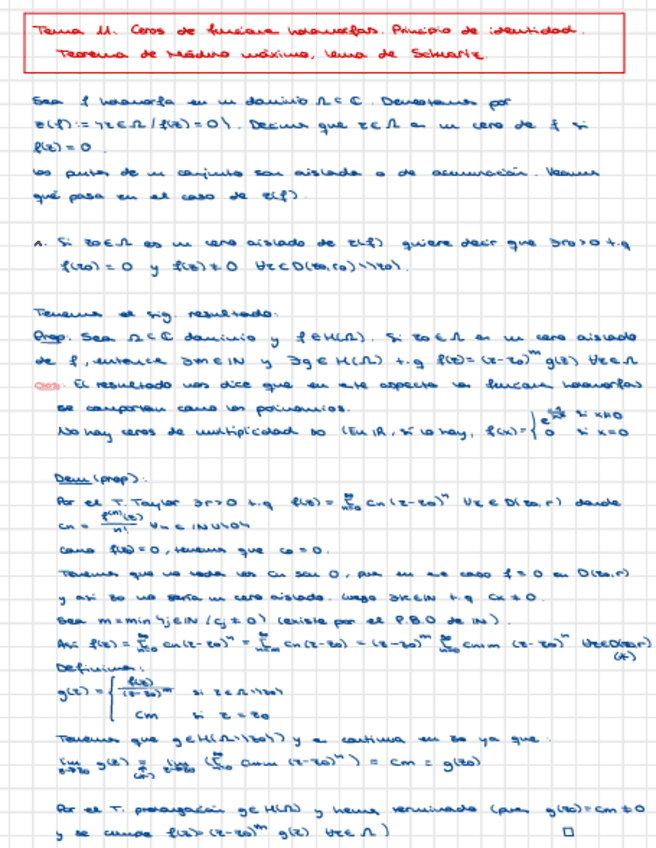 Tema 11. Ceros de funciones holomorfas. Principio de identidad.
Teorema de Módulo máximo, lema de Schwartz.
Sea f holomorfa en un dominio Ω⊂ℂ. Denotamos por
z(f):={z∈Ω/f(z)=0}. Decimos que z∈Ω es un cero de f si
f(z)=0
Los puntos de un conjunto son aislados o de acumulación. Veamos
qué pasa en el caso de z(f).
1. Si z0∈Ω es un cero aislado de z(f) quiere decir que ∃r0>0 t.q
f(z0)=0 y f(z)≠0 ∀z∈D(z0,r0)\{z0}.
Tenemos el sig resultado:
Prop. Sea Ω⊂ℂ dominio y f∈H(Ω). Si z0∈Ω es un cero aislado
de f, entonces ∃m∈ℕ y ∃g∈H(Ω) t.q f(z)=(z-z0)^m g(z) ∀z∈Ω
Obs: El resultado nos dice que en este aspecto las funciones holomorfas
se comportan como los polinomios.
No hay ceros de multiplicidad ∞ (En ℝ, sí lo hay, f(x)={ si x≠0
0 si x=0
Dem (prop):
Por el T. Taylor ∃r>0 t.q f(z)=∑_{n=0}^∞ cn(z-z0)^n ∀z∈D(z0,r) donde
cn = f^(n)(z)/n! ∀n∈ℕ∪{0}
como f(z0)=0, tenemos que c0=0.
Tenemos que no todos los cn son 0, pues en ese caso f=0 en D(z0,r)
y así z0 no sería un cero aislado. Luego ∃k∈ℕ t.q ck≠0.
Sea m=min{j∈ℕ/cj≠0} (existe por el P.B.O de ℕ).
Así f(z)=∑_{n=0}^∞ cn(z-z0)^n = ∑_{n=m}^∞ cn(z-z0) = (z-z0)^m ∑_{n=0}^∞ cn+m (z-z0)^n ∀z∈D(z0,r)
(*)
Definimos:
g(z)={ f(z)/(z-z0)^m si z∈Ω\{z0}
cm si z=z0
Tenemos que g∈H(Ω\{z0}) y es continua en z0 ya que:
lim_{z→z0} g(z) =_{(*)} lim_{z→z0} (∑_{n=0}^∞ cn+m (z-z0)^n) = cm = g(z0)
Por el T. prolongación g∈H(Ω) y hemos terminado (pues g(z0)=cm≠0
y se cumple f(z)=(z-z0)^m g(z) ∀z∈Ω) □